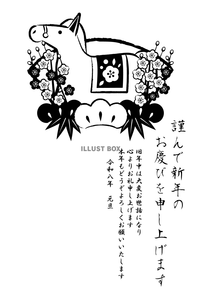 謹んで新年の
お慶びを申し上げます
旧年中は大変お世話になり
心よりお礼申し上げます
本年もどうぞよろしくお願いいたします
令和八年 元旦
ILLUST BOX